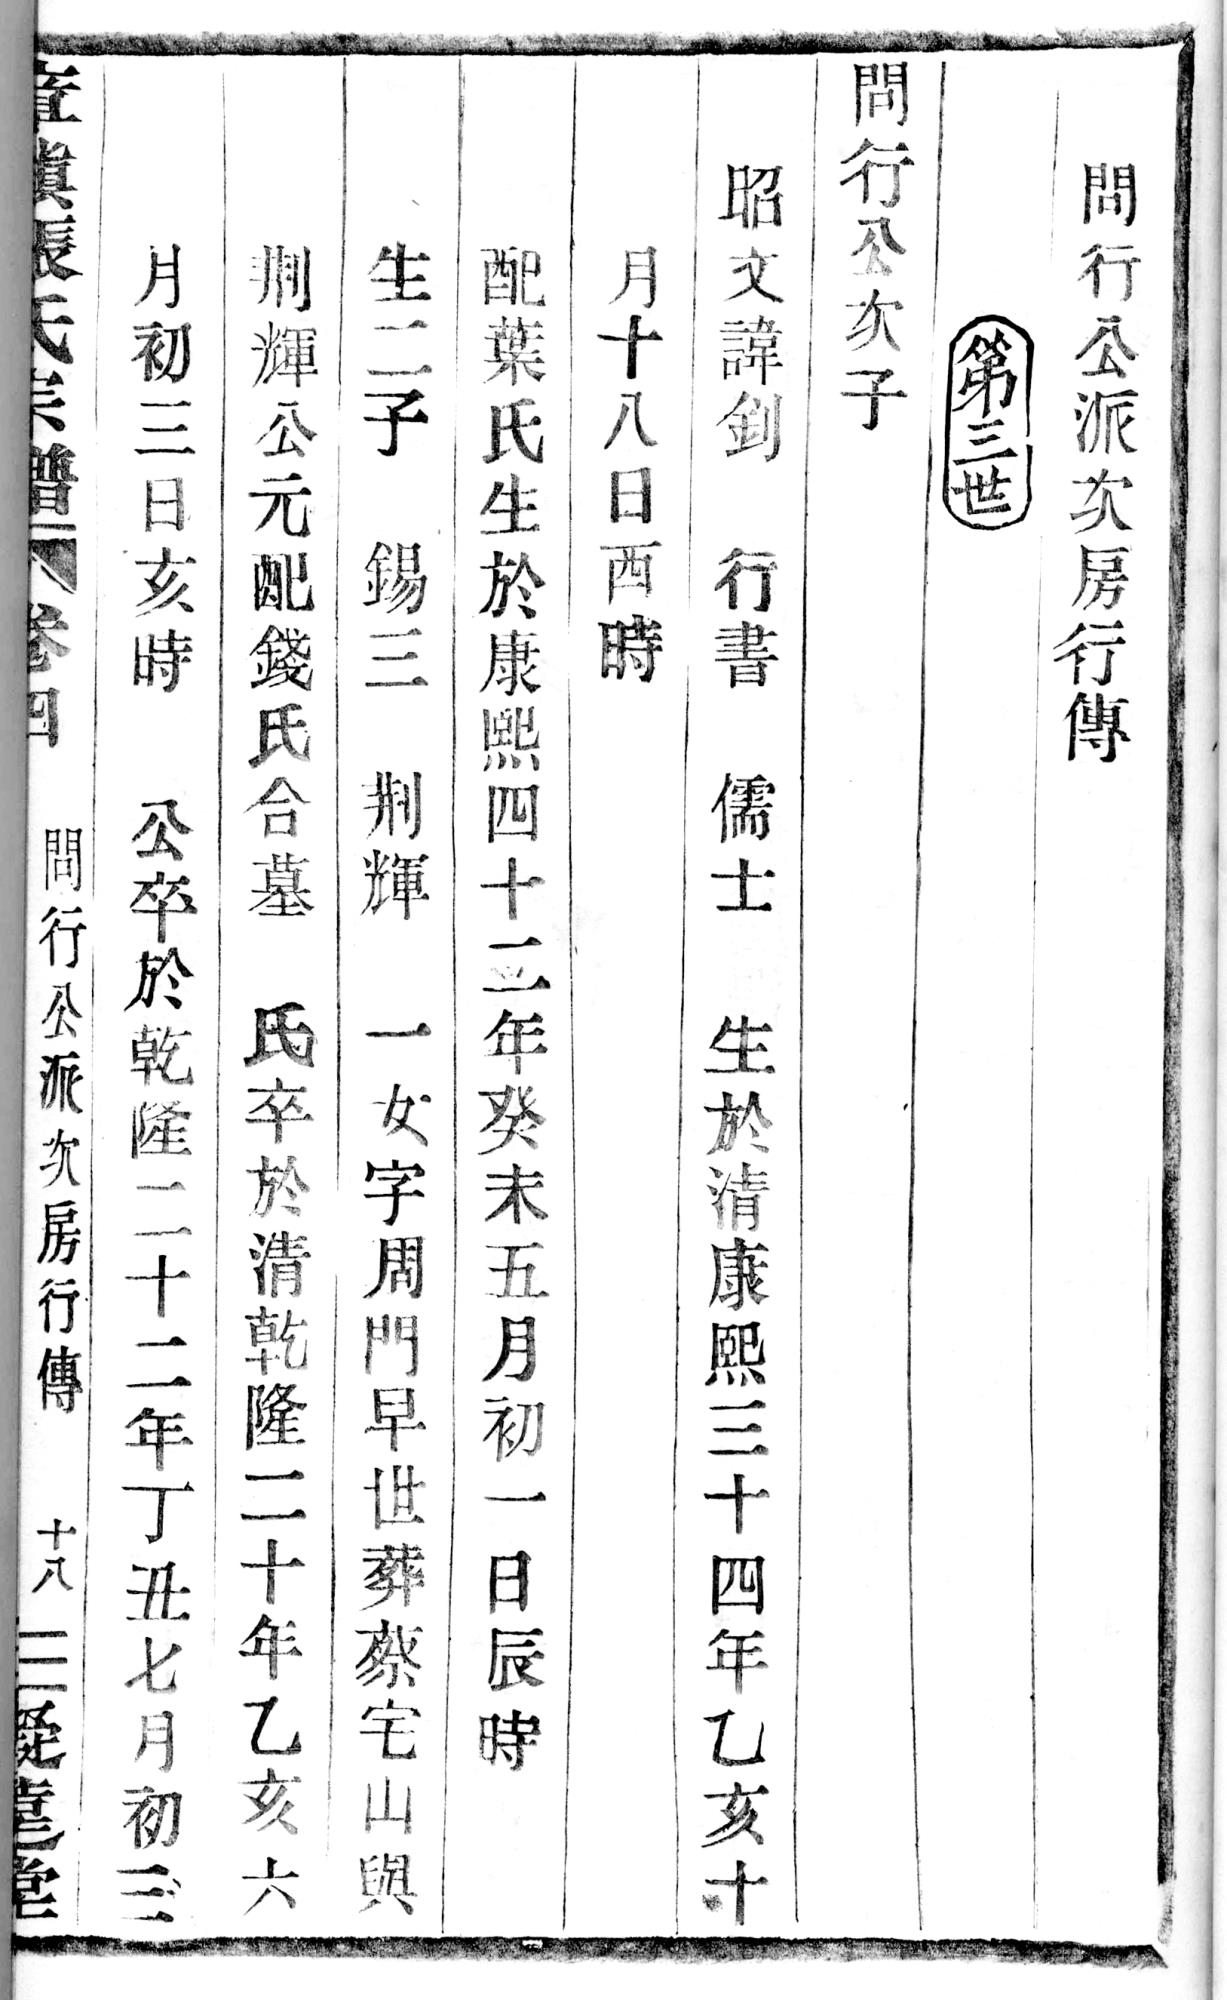 問行公派次房行傳
第三世
問行公次子
昭文諱釗　行書　儒士　生於清康熙三十四年乙亥十
月十八日酉時
配葉氏生於康熙四十二年癸未五月初一日辰時
生二子　錫三　荆輝　一女字周門早世葬蔡宅山與
荆輝公元配錢氏合墓　氏卒於清乾隆二十年乙亥六
月初三日亥時　公卒於乾隆二十二年丁丑七月初三
張氏宗譜　卷四　問行公派次房行傳　十八　堂